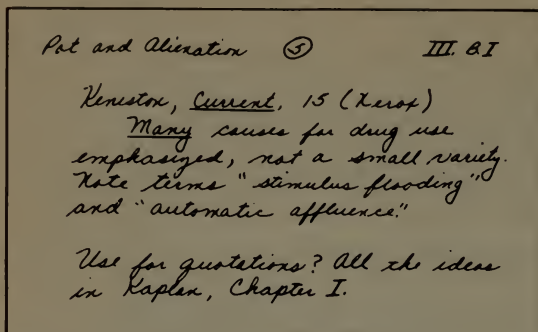 Pot and Alienation ⑤ III. B.I
Keniston, Current, 15 (Xerox)
Many causes for drug use
emphasized, not a small variety.
Note terms "stimulus flooding"
and "automatic affluence."
Use for quotations? All the ideas
in Kaplan, Chapter I.